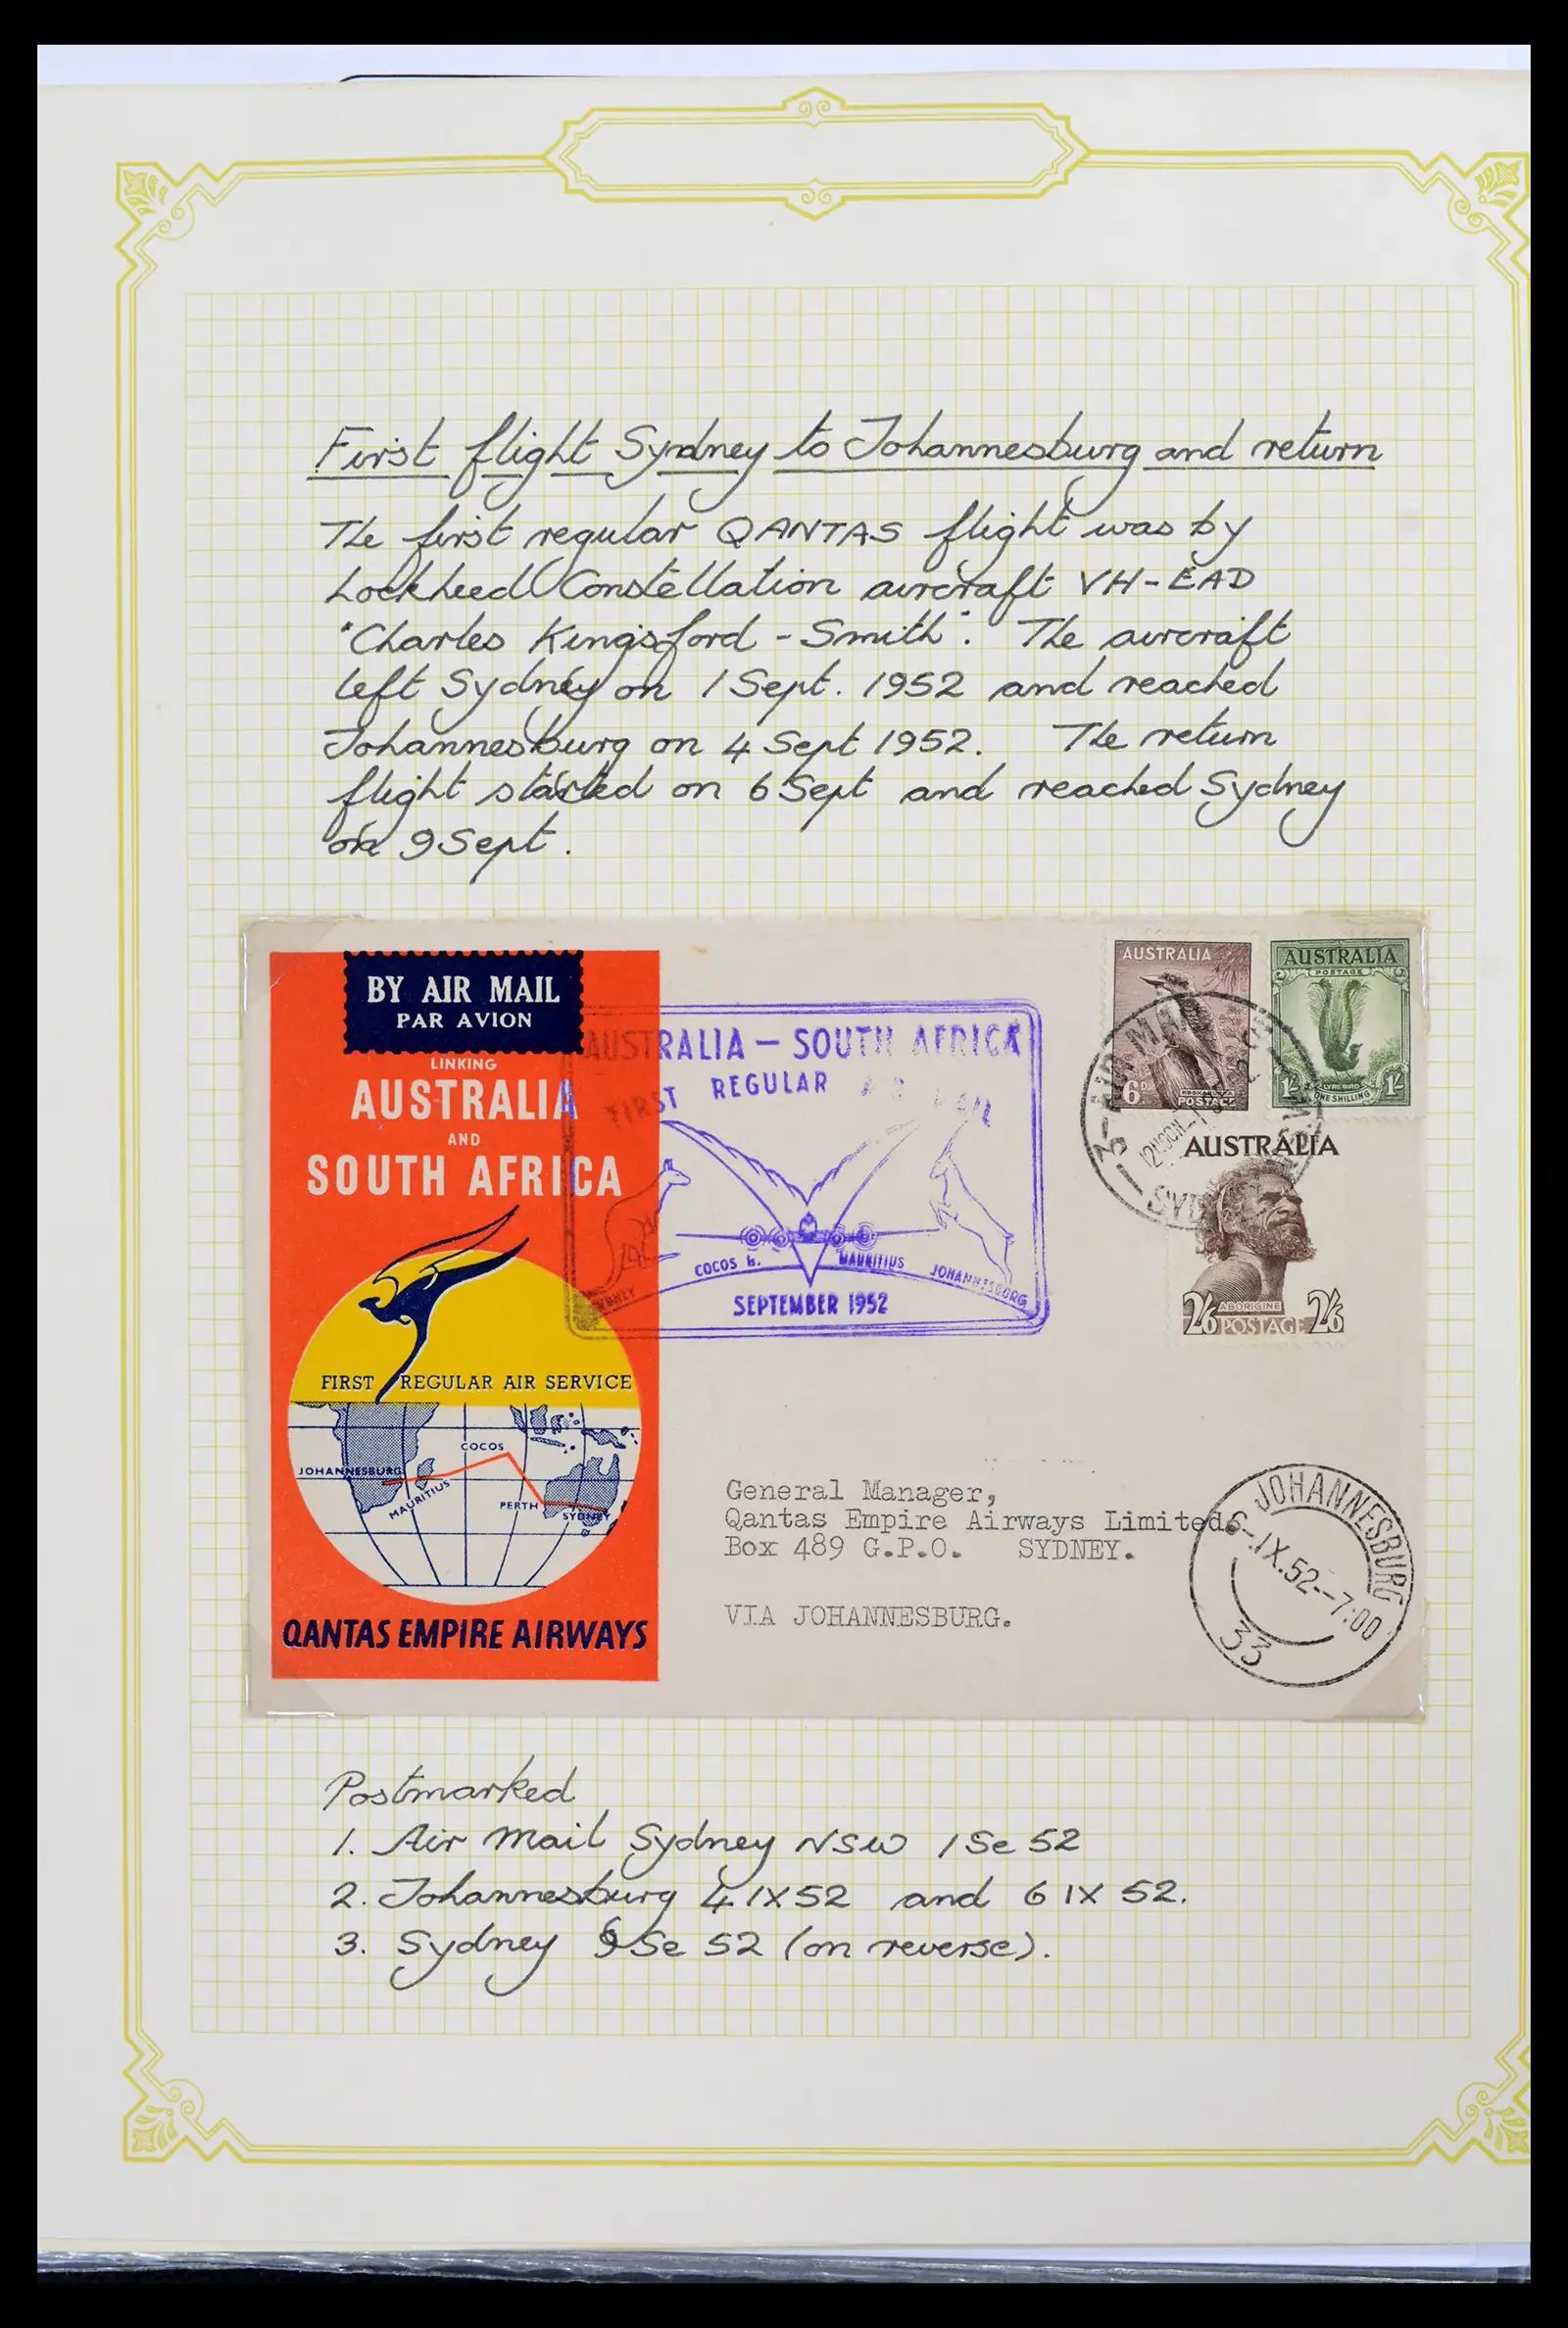 First flight Sydney to Johannesburg and return
The first regular QANTAS flight was by
Lockheed Constellation aircraft VH-EAD
"Charles Kingsford-Smith". The aircraft
left Sydney on 1 Sept. 1952 and reached
Johannesburg on 4 Sept 1952. The return
flight started on 6 Sept and reached Sydney
on 9 Sept.
BY AIR MAIL
PAR AVION
LINKING
AUSTRALIA
AND
SOUTH AFRICA
FIRST REGULAR AIR SERVICE
COCOS
JOHANNESBURG
MAURITIUS
PERTH
SYDNEY
QANTAS EMPIRE AIRWAYS
AUSTRALIA — SOUTH AFRICA
FIRST REGULAR AIR MAIL
SYDNEY COCOS Is. MAURITIUS JOHANNESBURG
SEPTEMBER 1952
AUSTRALIA
6D
KOOKABURRA
POSTAGE
AUSTRALIA
POSTAGE
1/- LYREBIRD 1/-
ONE SHILLING
3-AIR MAIL
12 NOON
SYDNEY
AUSTRALIA
ABORIGINE
2/6 POSTAGE 2/6
General Manager,
Qantas Empire Airways Limited,
Box 489 G.P.O. SYDNEY.
VIA JOHANNESBURG.
JOHANNESBURG
6-IX.52--7:00
33
Postmarked
1. Air Mail Sydney NSW 1 Se 52
2. Johannesburg 4 IX 52 and 6 IX 52.
3. Sydney 9 Se 52 (on reverse).